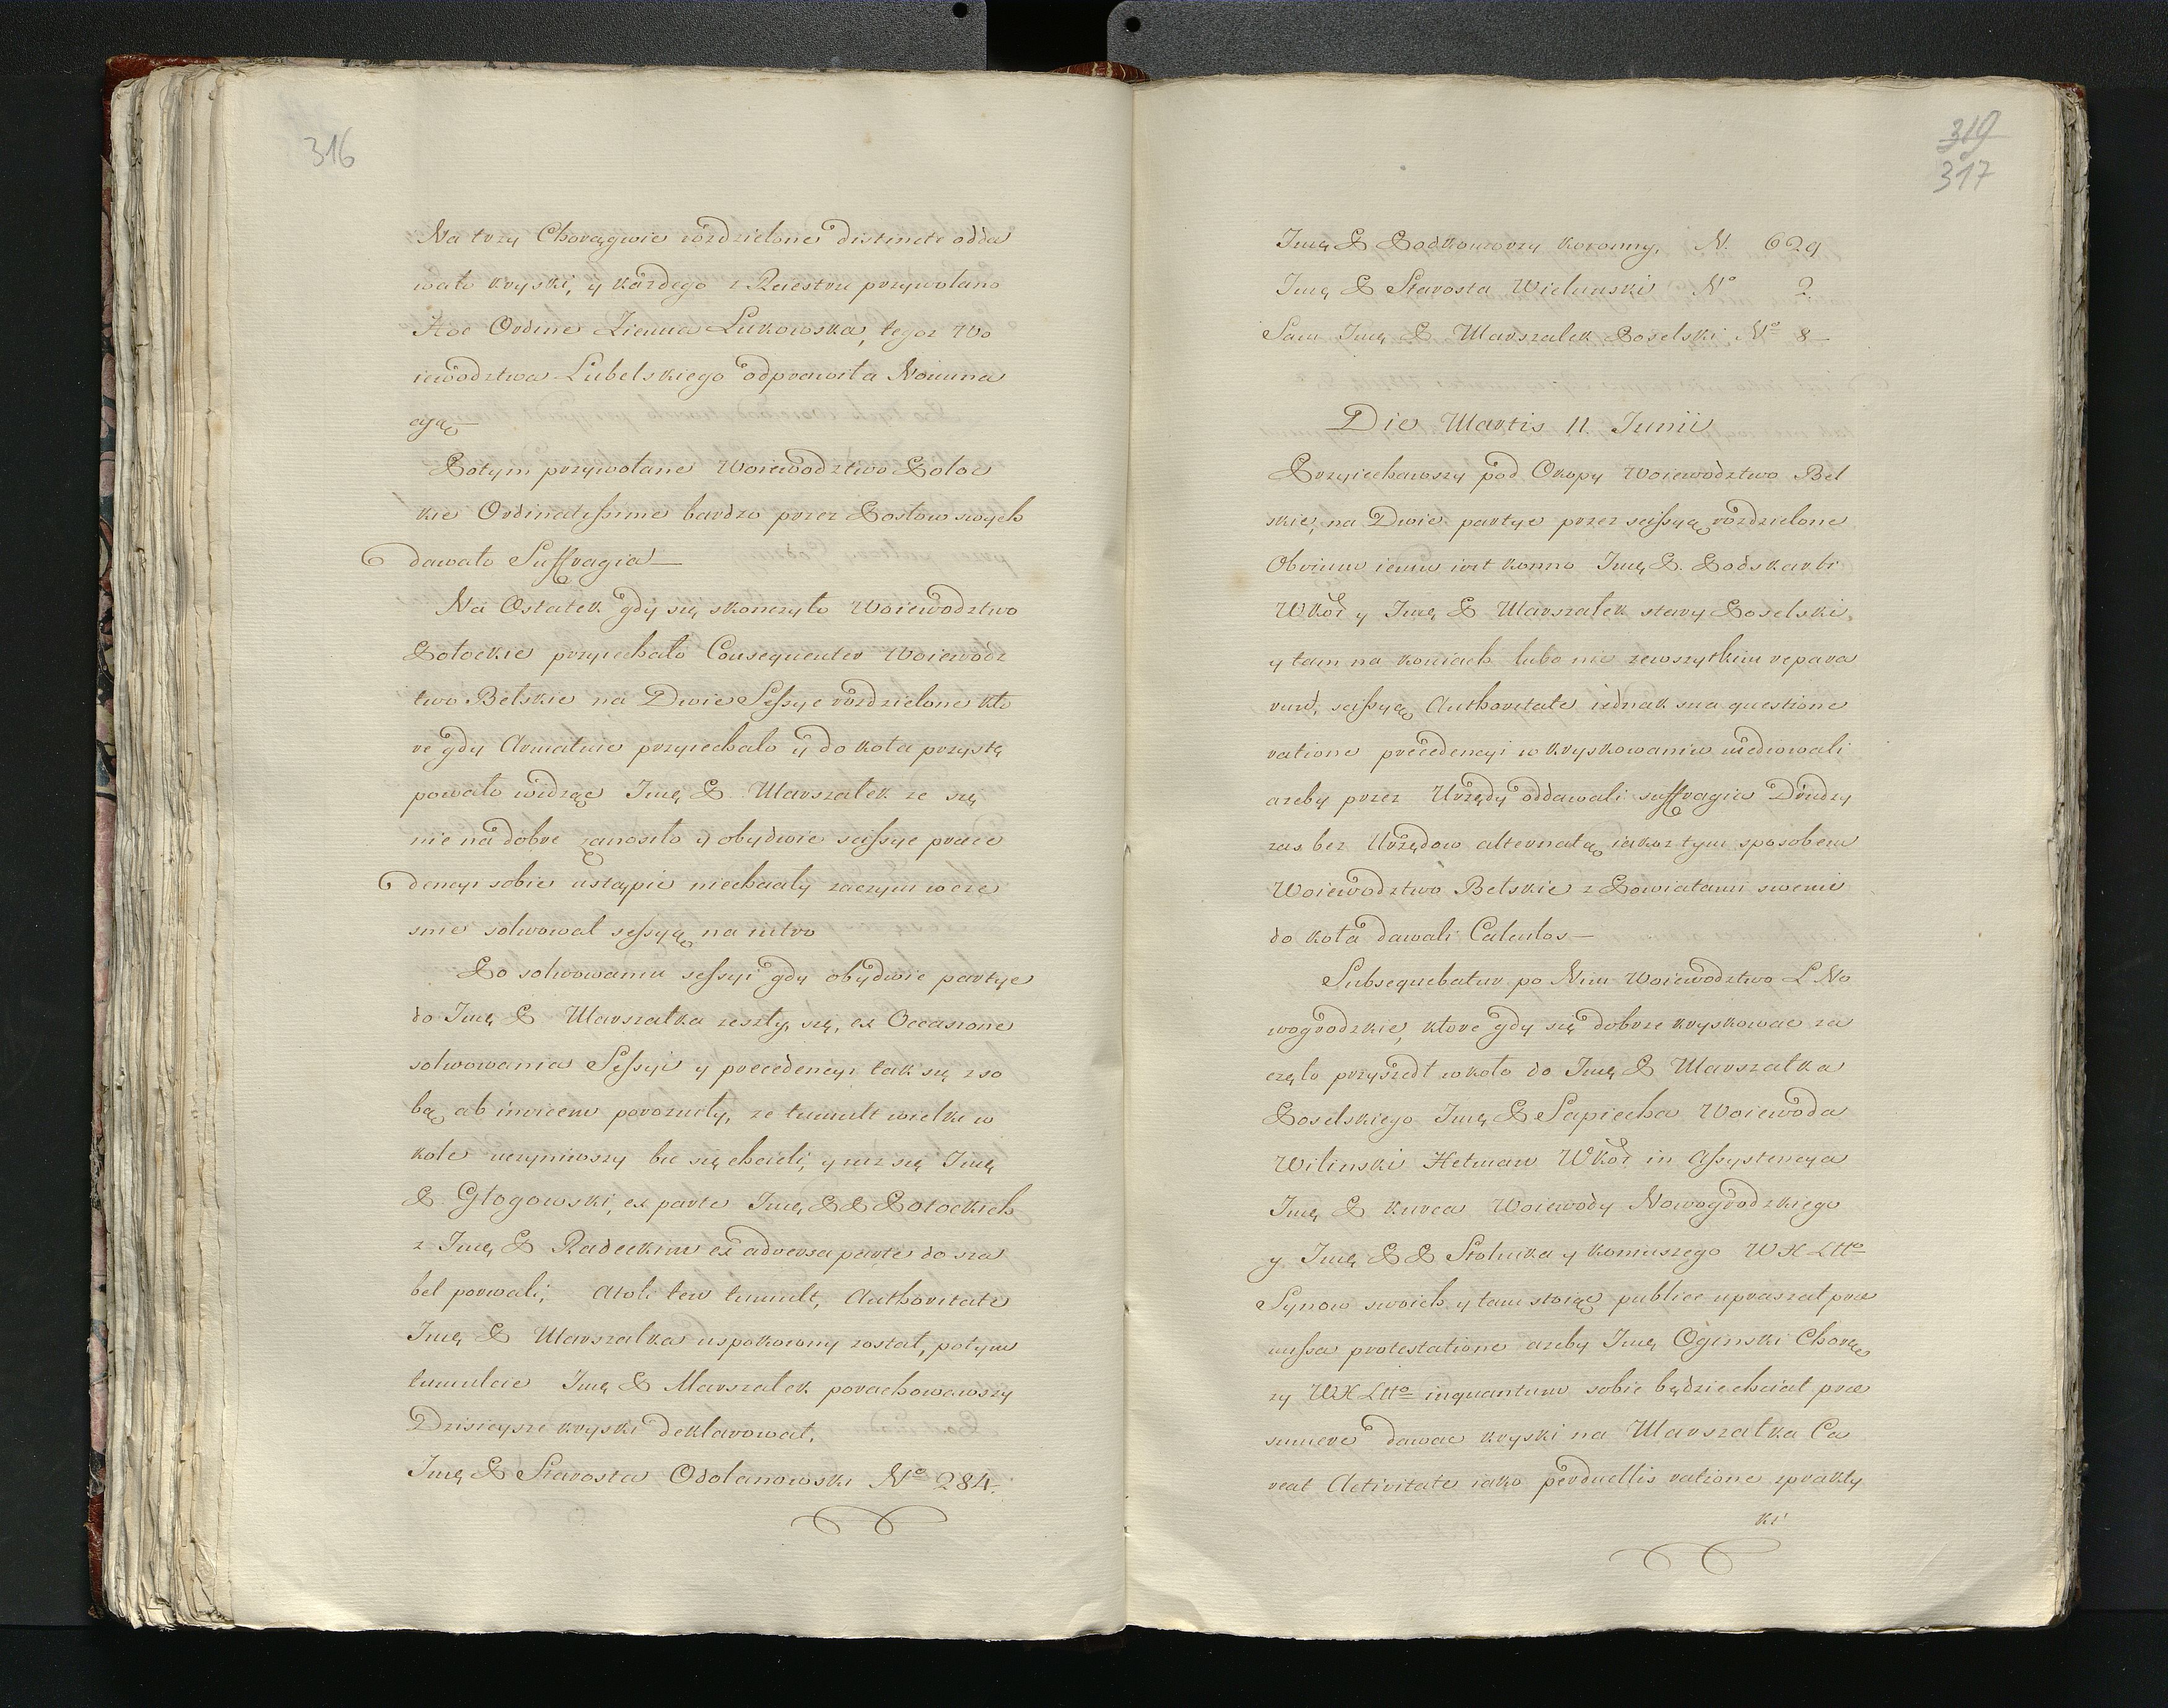 316
Na trzy Chorągwie rozdzielone distincte odda
wało kryski, y każdego z Reiestru przywołano
Hoc Ordine Ziemia Łukowska, tegoz Wo
iewodztwa Lubelskiego odprawiła Nomina
cyą
Potym przywołane Woiewodztwo Poloc
kie Ordinatissime bardzo przez Posłow swych
dawało Suffragia
Na Ostatek gdy się skonczyło Woiewodztwo
Połockie przyiechało Consequenter Woiewodz
two Bełskie na Dwie Sessye rozdzielone kto
re gdy Armatnie przyiechało y do koła przystę
powało widząc Jmę P. Marszałek ze się
nie na dobre zanosiło y obydwie scissye prece
dencyi sobie ustąpic niechciały zaczym wcze
snie solwował sessyą na iutro
Po solwowaniu sessyi gdy obydwie partye
do Jmę P. Marszałka zeszły się, ex Occasione
solwowania Sessyi y precedencyi tak się zso
bą ab invicem porozniły, ze tumult wielki w
kole uczyniwszy bic się chcieli, y iuz się Jmę
P. Głogowski, ex parte Jmę P P Potockich
z Jmę P Radeckim ex adversa parte do sza
bel porwali, Atoli ten tumult, Authoritate
Jmę P Marszałka uspokoiony został, po tym
tumulcie Jmę P Marszałek porachowawszy
Dzisieysze kryski deklarował.
Jmę P Starosta Odolanowski No 284.
319
317
Jmę P Podkomorzy koronny, N. 629
Jmę P Starosta Wielunski No 2
Sam Jmę P Marszałek Poselski No 8
Die Martis 11 Junii
Przyiechawszy pod Okopy Woiewodztwo Bel
skie, na Dwie partye przez scissyą rozdzielone
Obvium iemu ivit konno Jmę P. Podskarbi
WKor y Jmę P Marszałek stary Poselski,
y tam na koniach lubo nie zewszytkim repara
runt, scissyą Authoritate iednak sua questione
ratione precedencyi w kryskowaniu mediowali
azeby przez Urzędy oddawali suffragia Drudzy
zas bez Urzędow alternatą iakoz tym sposobem
Woiewodztwo Bełskie z Powiatami swemi
do koła dawali Calculos
Subsequebatur po Nim Woiewodztwo L No
wogrodzkie, ktore gdy się dobrze kryskowac za
częło przyszedł w koło do Jmę P Marszałka
Poselskiego Jmę P Sapiecha Woiewoda
Wilinski Hetman WKor in Assystencya
Jmę P kurca Woiewody Nowogrodzkiego
y Jmę P P Stolnika y koniuszego WX Litto
Synow swoich y tam stoiąc publice upraszał prae
missa protestatione azeby Jmę Oginski Chorą
zy WX Litto inquantum sobie będzie chciał prae
sumere dawac kryski na Marszałka Ca
reat Activitate iako perduellis ratione zprakty
ki